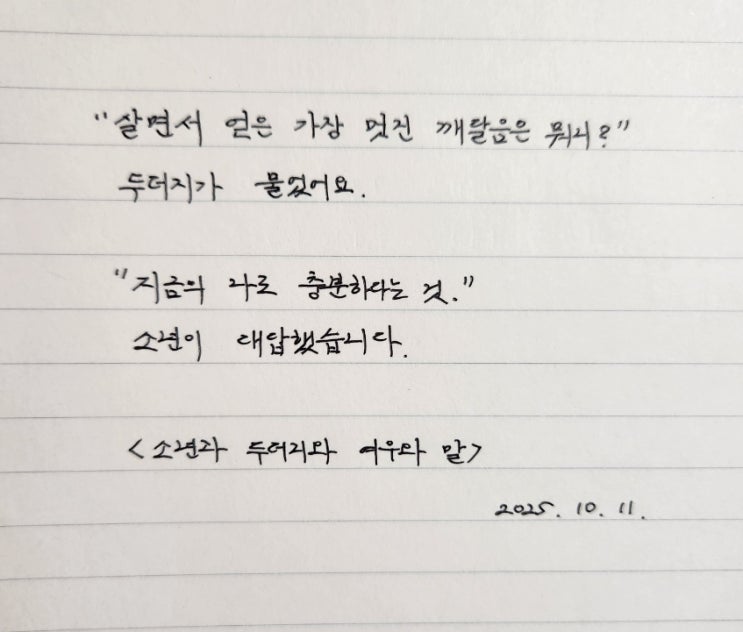 "살면서 얻은 가장 멋진 깨달음은 뭐니?"
두더지가 물었어요.
"지금의 나로 충분하다는 것."
소년이 대답했습니다.
<소년과 두더지와 여우와 말>
2025. 10. 11.